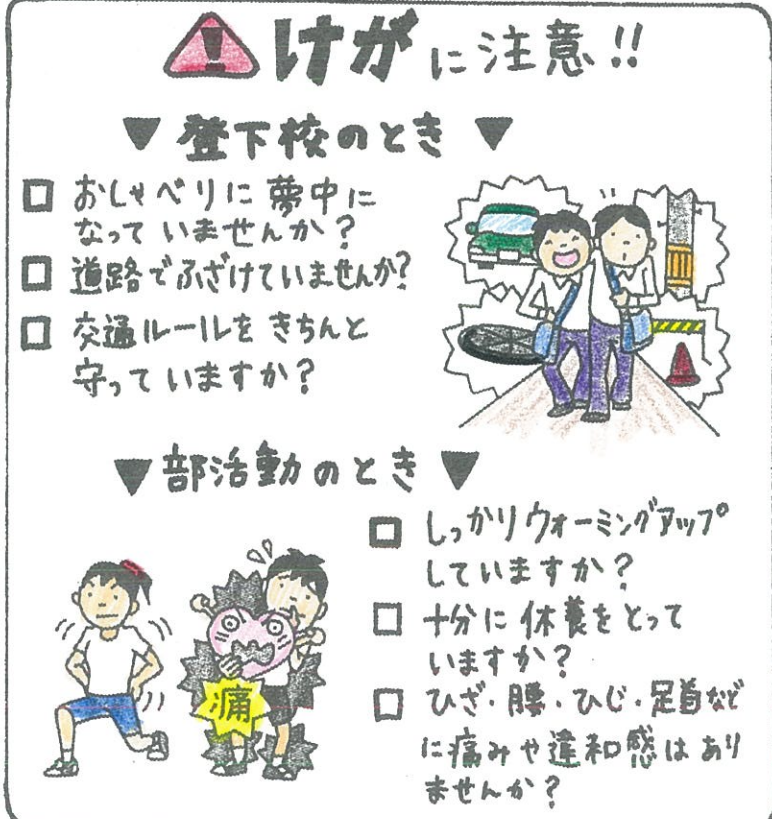 けがに注意!!
▼ 登下校のとき ▼
□ おしゃべりに夢中に
なっていませんか?
□ 道路でふざけていませんか?
□ 交通ルールをきちんと
守っていますか?
▼部活動のとき▼
□ しっかりウォーミングアップ
していますか?
□ 十分に休養をとって
いますか?
□ ひざ・腰・ひじ・足首など
に痛みや違和感はあり
ませんか?
痛